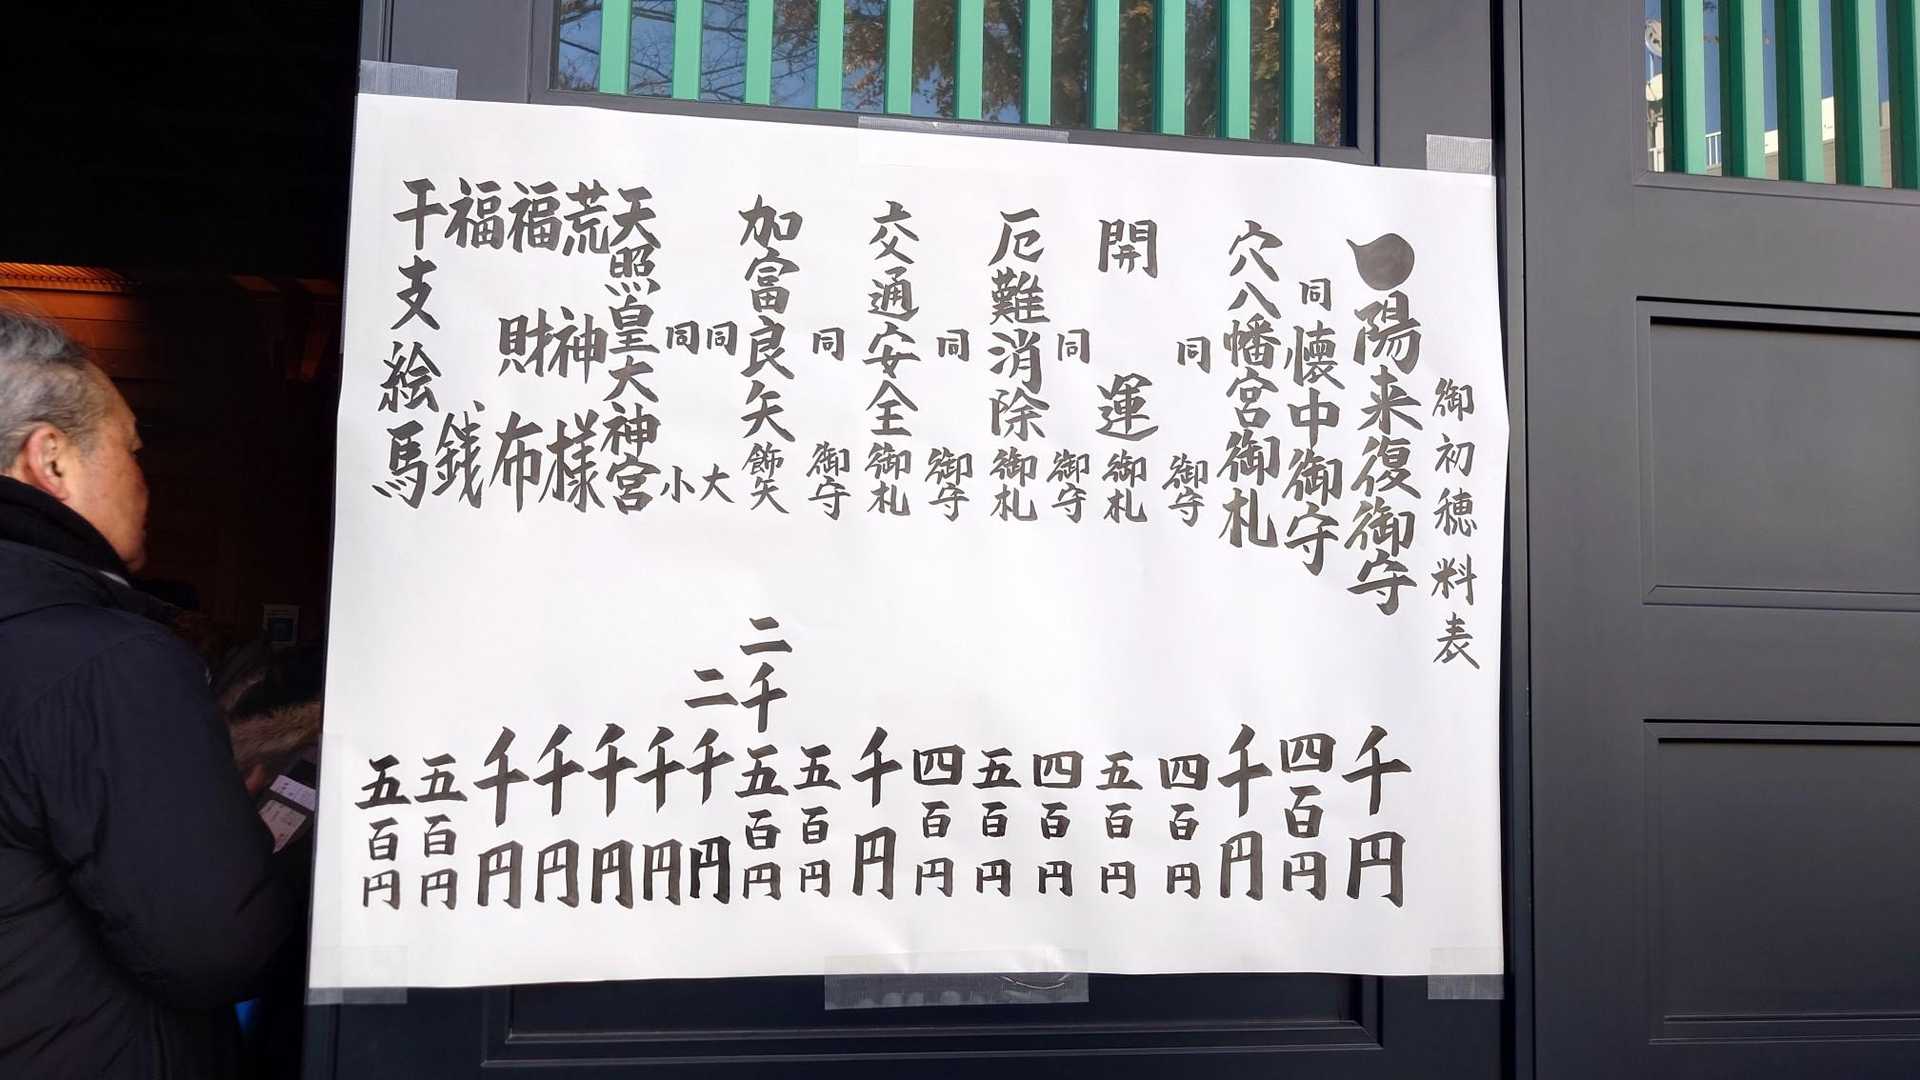 御初穂料表
一陽来復御守 千円
同懐中御守 四百円
穴八幡宮御札 千円
同 御守 四百円
開運 御札 五百円
同 御守 四百円
厄難消除 御札 五百円
同 御守 四百円
交通安全 御札 千円
同 御守 五百円
加富良矢 飾矢 二千五百円
同 大 二千円
同 小 千円
天照皇大神宮 千円
荒神様 千円
福財布 千円
福銭 五百円
干支絵馬 五百円